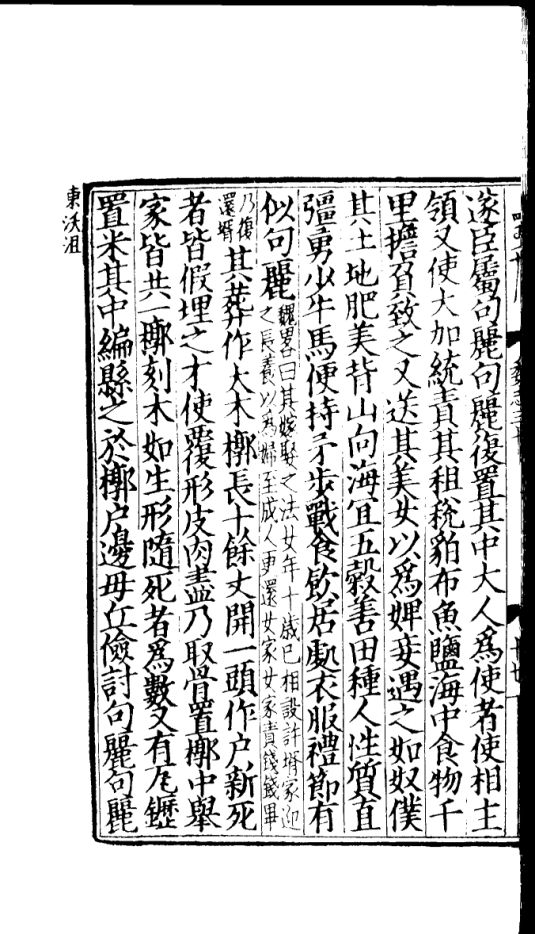 遂臣屬句麗句麗復置其中大人爲使者使相主
領又使大加統責其租稅貊布魚鹽海中食物千
里擔負致之又送其美女以爲婢妾遇之如奴僕
其土地肥美背山向海宜五穀善田種人性質直
彊勇少牛馬便持矛步戰食飲居處衣服禮節有
似句麗魏畧曰其嫁娶之法女年十歲已相設許壻家迎
之長養以爲婦至成人更還女家女家責錢錢畢
乃復
還壻其葬作大木槨長十餘丈開一頭作户新死
者皆假埋之才使覆形皮肉盡乃取骨置槨中舉
家皆共一槨刻木如生形隨死者爲數又有瓦䥶
置米其中編縣之於槨户邊毋丘儉討句麗句麗
東沃沮